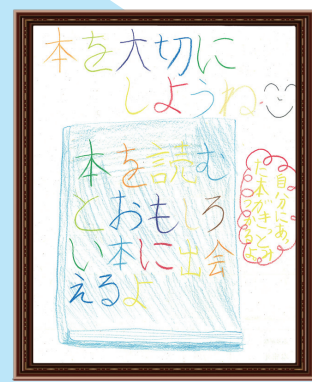 本を大切に
しようね。
本を読む
とおもしろ
い本に出会
えるよ
自分にあっ
た本がきっとみ
つかるよ